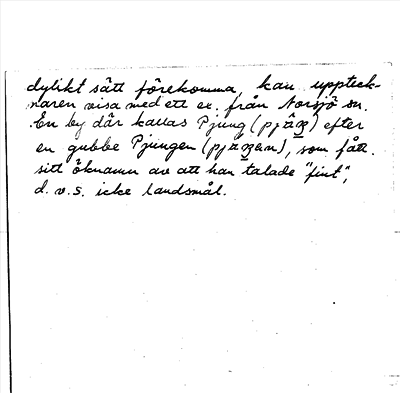 dylikt sätt förekomma, kan uppteck-
naren visa med ett ex. från Norsjö sn.
En by där kallas Pjung (pjäŋ) efter
en gubbe Pjungen (pjäŋen), som fått
sitt öknamn av att han talade "fint",
d.v.s. icke landsmål.